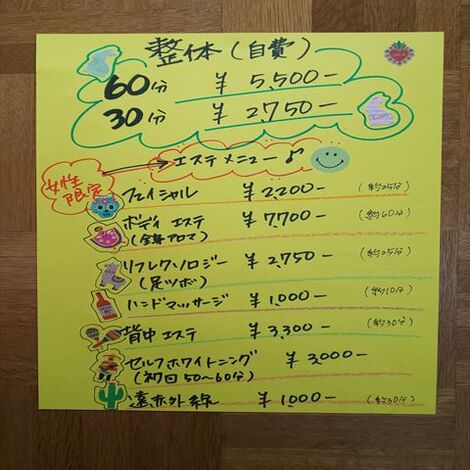 整体(自費)
60分 ¥5,500-
30分 ¥2,750-
女性限定 → エステメニュー♪
フェイシャル ¥2,200- (約25分)
ボディ エステ ¥7,700- (約60分)
(全身アロマ)
リフレクソロジー ¥2,750- (約25分)
(足ツボ)
ハンドマッサージ ¥1,000- (約10分)
背中エステ ¥3,300- (約30分)
セルフホワイトニング ¥3,000-
(初回50~60分)
遠赤外線 ¥1,000- (約30分)